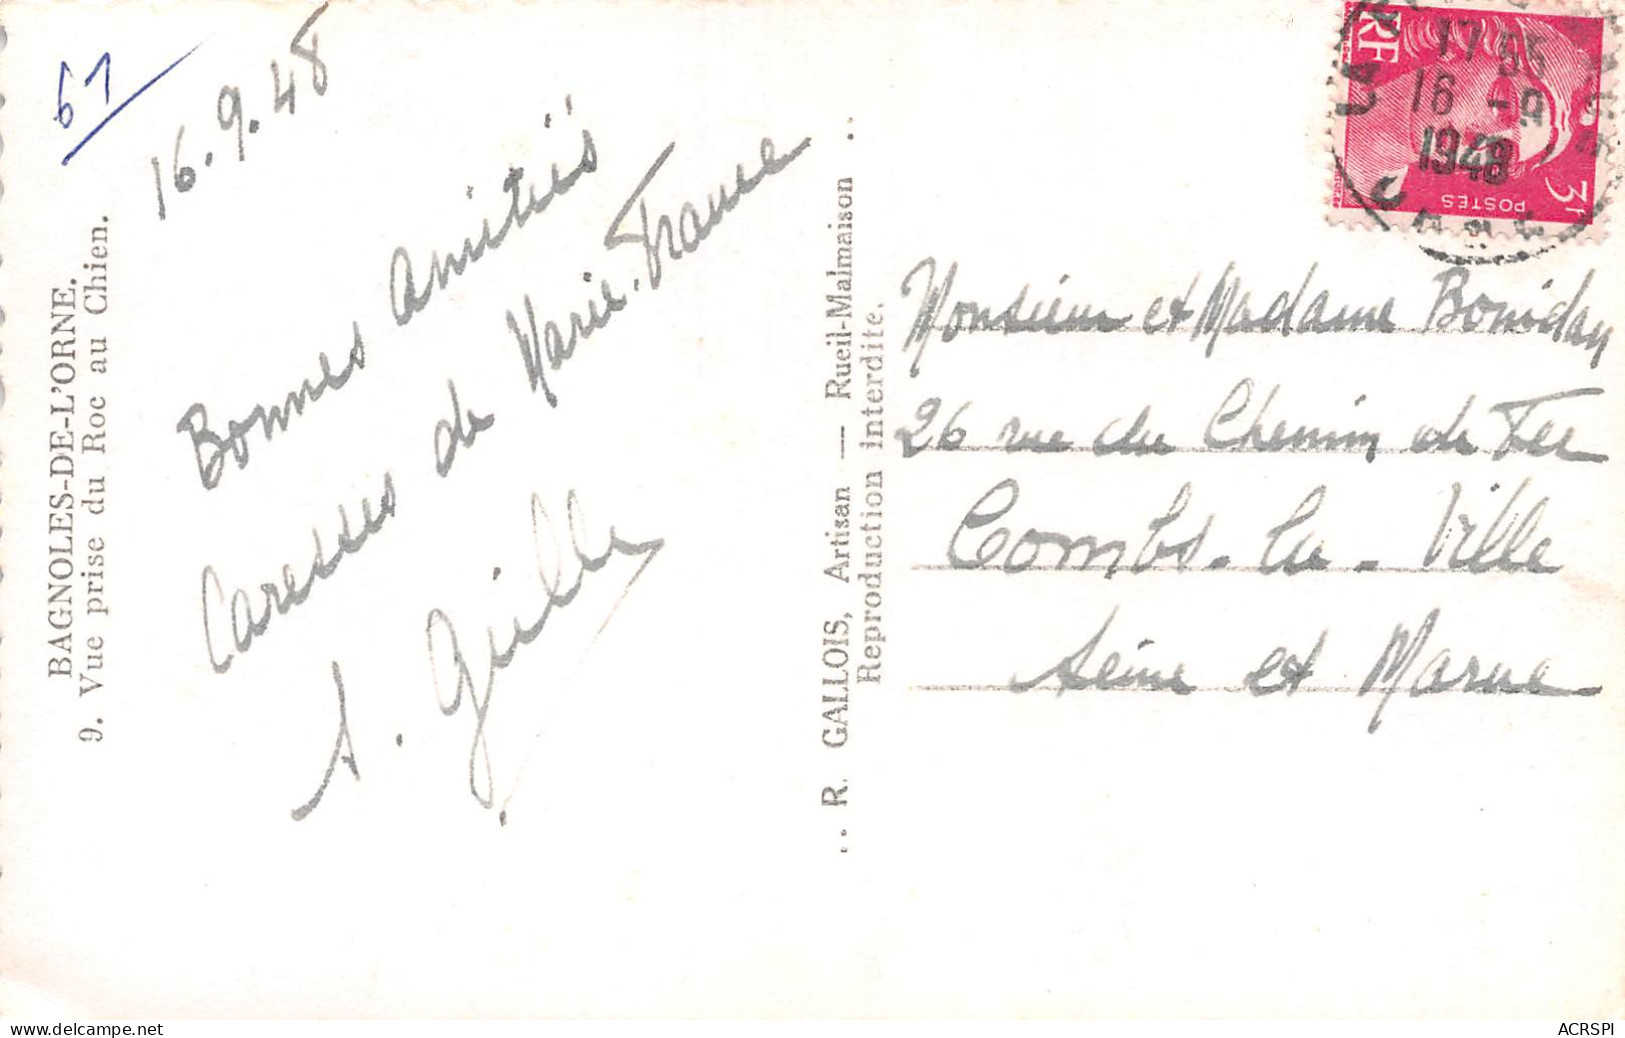 61
16.9.48
BAGNOLES-DE-L'ORNE.
9. Vue prise du Roc au Chien.
Bonnes amitiés
Caresses de Marie-France
.. R. GALLOIS, Artisan — Rueil-Malmaison ..
Reproduction interdite.
RF
POSTES
3F
17 55
16 -9
1948
Monsieur et Madame
26 rue du Chemin de Fer
Combs-la-Ville
Seine et Marne
www.delcampe.net
ACRSPI